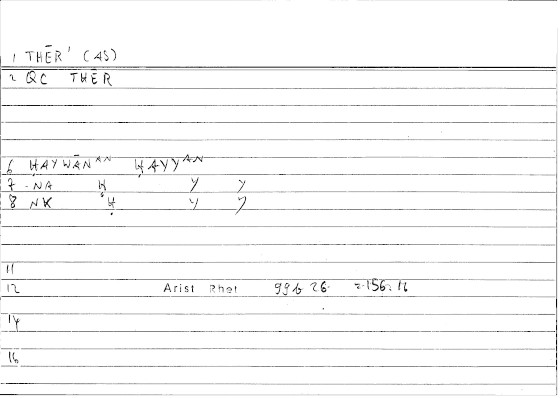 1 THĒR' (AS)
2 QC THĒR
6 ḤAYWĀNᴬᴺ ḤAYYᴬᴺ
7 -NA Ḥ Y Y
8 NK Ḥ Y Y
11
12 Arist Rhet 99b 26 = 156: 16
14
16